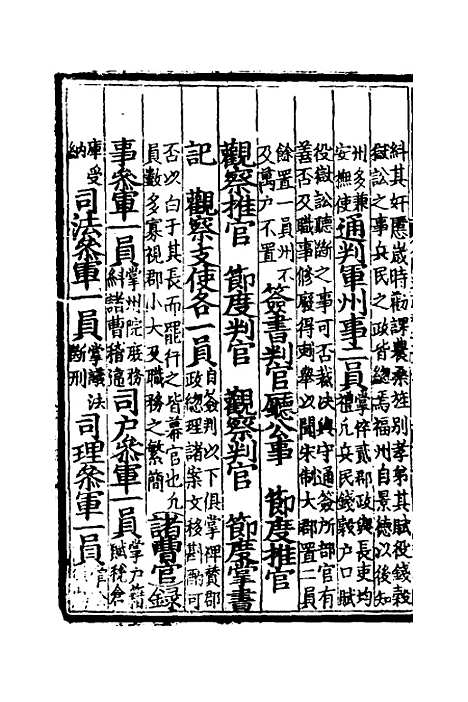 糾其奸慝歲時勸課農桑旌别孝弟其賦役錢穀
獄訟之事兵民之政皆緫焉福州自景德以後知
州多兼
安撫使
通判軍州事二員
掌倅貳郡政與長吏均
禮凡兵民錢穀户口賦
役獄訟聽斷之事可否裁決與守通簽所部官有
善否及職事修廢得刺舉以聞宋制大郡置二員
餘置一員州不
及萬户不置
簽書判官廳公事 節度推官
觀察推官 節度判官 觀察判官 節度掌書
記 觀察支使各一員
自簽判以下俱掌裨贊郡
政緫理諸案文移斟酌可
否以白于其長而罷行之皆幕官也凡
員數多寡視郡小大及職務之繁簡
諸曹官 録
事叅軍一員
掌州院庶務
糾諸曹稽違
司户叅軍一員
掌户籍
賦稅倉
庫受
納
司法叅軍一員
掌議法
斷刑
司理叅軍一員